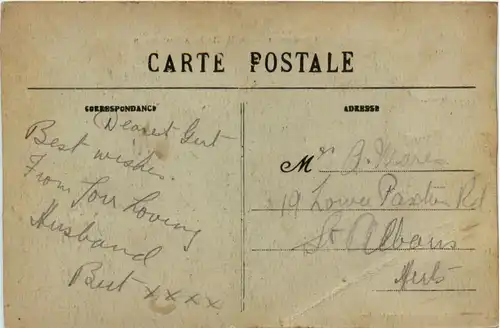 CARTE POSTALE
CORRESPONDANCE
Dearest Gert
Best wishes.
From Your Loving
Husband
Bert xxxx
ADRESSE
Mrs
19 Lower Paxton Rd
St Albans
Herts